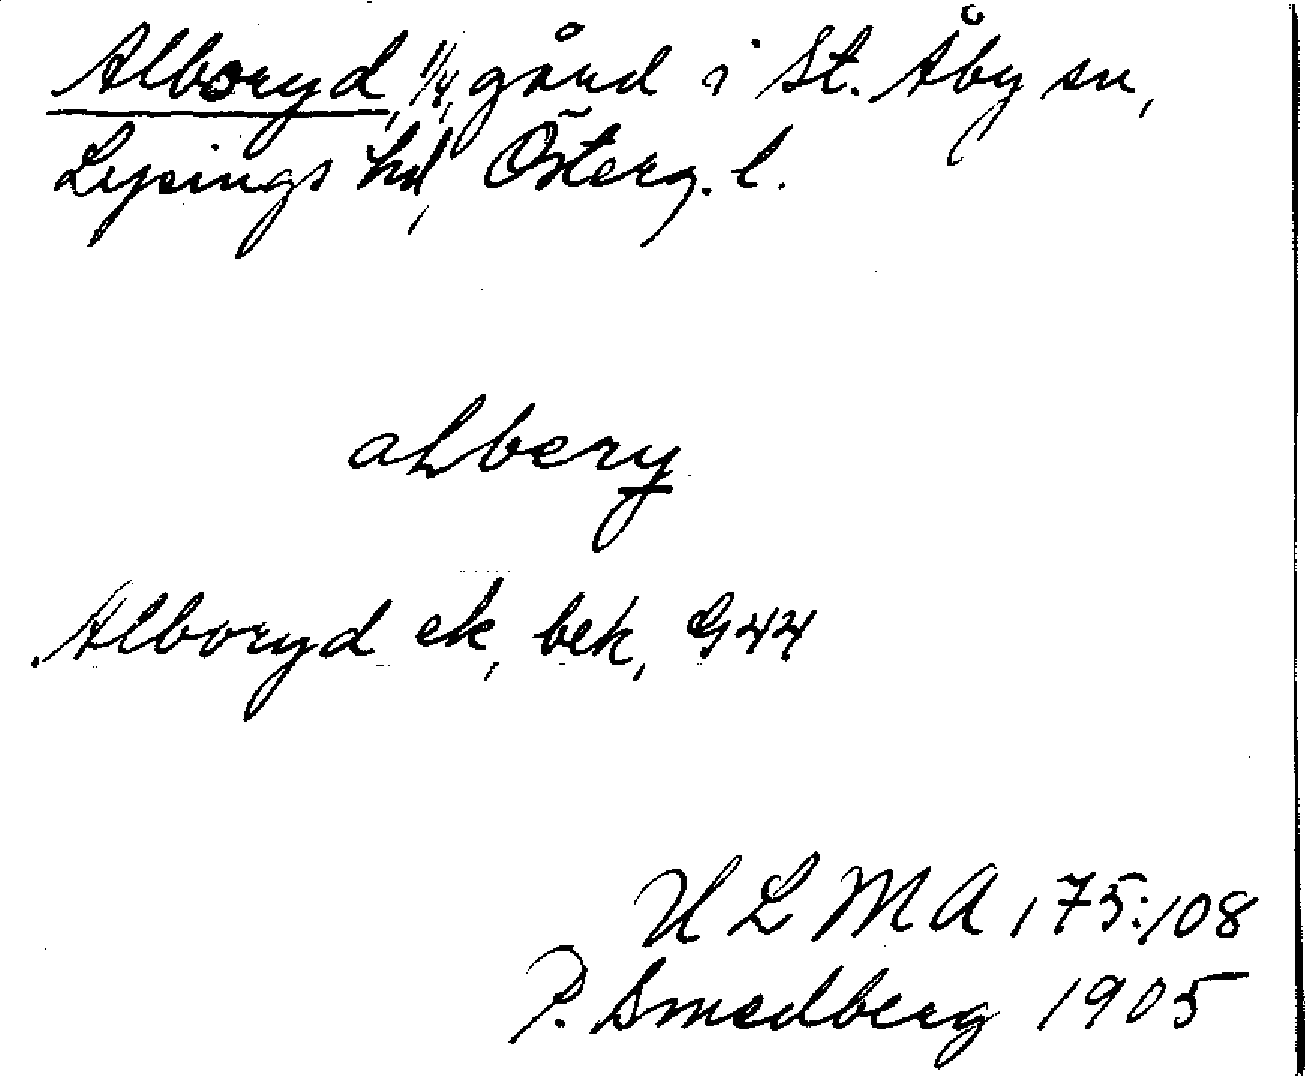 Alboryd, 1/4, gård i St. Åby sn,
Lysings hd, Österg. l.
aLbery
Alboryd ek, bek, G44
ULMA 175:108
P. Smedberg 1905